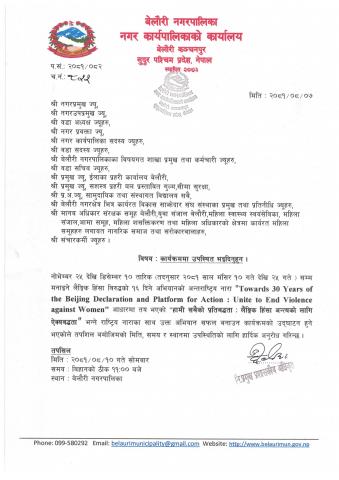 बेलौरी नगरपालिका
नगर कार्यपालिकाको कार्यालय
बेलौरी कञ्चनपुर
सुदूर पश्चिम प्रदेश, नेपाल
स्थापित २०७३
प.सं.: २०८१/०८२
च.नं.:
मिति : २०८१/०८/०७
श्री नगरप्रमुख ज्यू,
श्री नगरउपप्रमुख ज्यू,
श्री वडा अध्यक्ष ज्यूहरु,
श्री नगर प्रवक्ता ज्यू,
श्री नगर कार्यपालिका सदस्य ज्यूहरु,
श्री वडा सदस्य ज्यूहरु,
श्री बेलौरी नगरपालिकाका विषयगत शाखा प्रमुख तथा कर्मचारी ज्यूहरु,
श्री वडा सचिव ज्यूहरु,
श्री प्रमुख ज्यू, ईलाका प्रहरी कार्यालय बेलौरी,
श्री प्रमुख ज्यू, सशस्त्र प्रहरी बल प्रस्तावित गुल्म,सीमा सुरक्षा,
श्री प्र.अ.ज्यू, सामुदायिक तथा संस्थागत विद्यालय सबै,
श्री बेलौरी नगरक्षेत्र भित्र कार्यरत विकास साझेदार संघ संस्थाका प्रमुख तथा प्रतिनिधि ज्यूहरु,
श्री मानव अधिकार संरक्षक समूह बेलौरी,युवा संजाल बेलौरी,महिला स्वास्थ्य स्वयंसेविका, महिला
संजाल,आमा समूह, महिला सशक्तिकरण तथा महिला अधिकारको क्षेत्रमा कार्यरत महिला
समूहहरु लगायत नागरिक समाज तथा सरोकारवालाहरु,
श्री संचारकर्मी ज्यूहरु ।
विषय : कार्यक्रममा उपस्थित भइदिनुहुन ।
नोभेम्बर २५ देखि डिसेम्बर १० तारिक (तदनुसार २०८१ साल मंसिर १० गते देखि २५ गते ) सम्म
मनाइने लैङ्गिक हिंसा विरुद्धको १६ दिने अभियानको अन्तर्राष्ट्रिय नारा "Towards 30 Years of
the Beijing Declaration and Platform for Action : Unite to End Violence
against Women" आधारमा तय भएको "हामी सबैको प्रतिबद्धता : लैङ्गिक हिंसा अन्त्यको लागि
ऐक्यबद्धता" भन्ने राष्ट्रिय नाराका साथ उक्त अभियान सफल बनाउन कार्यक्रमको उद्घाटन हुने
भएकोले तपसिल बमोजिमको मिति, समय र स्थानमा उपस्थितिको लागि हार्दिक अनुरोध गरिन्छ ।
तपसिल
मिति : २०८१/०८/१० गते सोमवार
समय : बिहानको ठीक ११:०० बजे
स्थान : बेलौरी नगरपालिका
Phone: 099-580292 Email: belaurimunicipality@gmail.com Website: http://www.belaurimun.gov.np